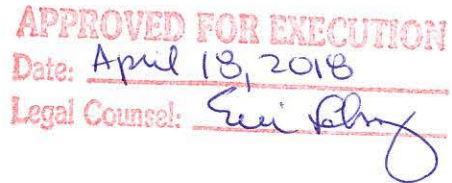 APPROVED FOR EXECUTION
Date: April 18, 2018
Legal Counsel: